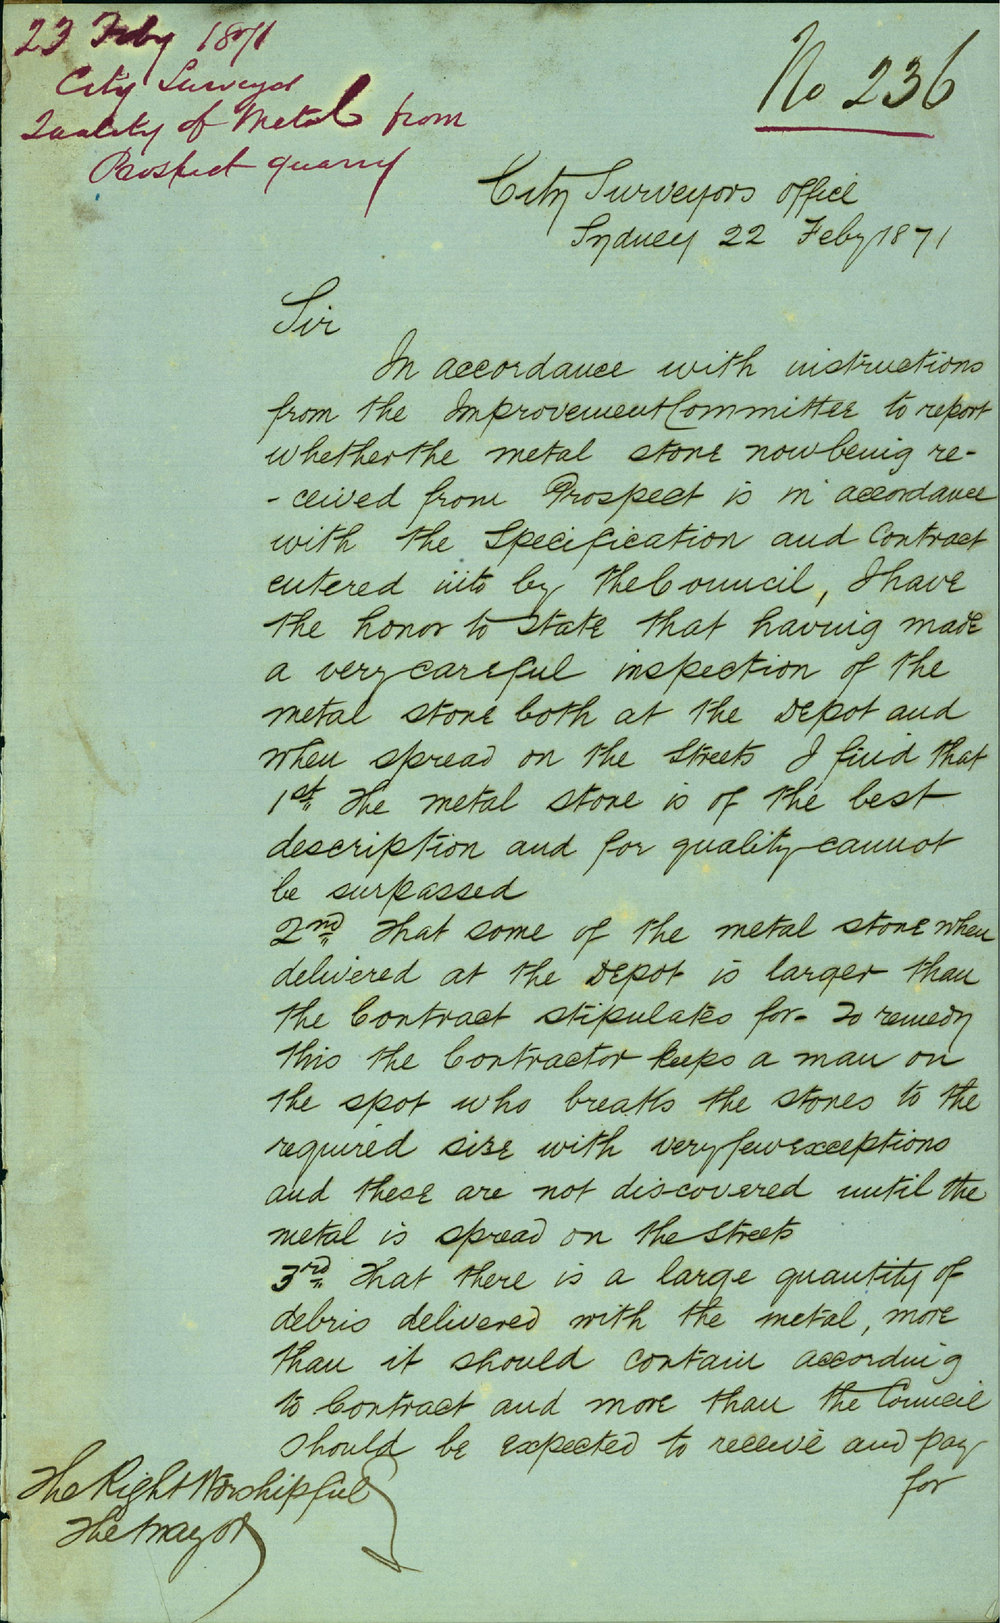 23 Feby 1871
City Surveyor
Quality of Metal from
Prospect quarry
No 236
City Surveyors Office
Sydney 22 Feby 1871
Sir
In accordance with instructions
from the Improvement Committee to report
whether the metal stone now being re-
-ceived from Prospect is in accordance
with the Specification and Contract
entered into by the Council, I have
the honor to state that having made
a very careful inspection of the
metal stone both at the Depot and
when spread on the Streets I find that
1st The metal stone is of the best
description and for quality cannot
be surpassed
2nd That some of the metal stone when
delivered at the Depot is larger than
the Contract stipulates for- To remedy
this the Contractor keeps a man on
the spot who breaks the stones to the
required size with very few exceptions
and these are not discovered until the
metal is spread on the Streets
3rd That there is a large quantity of
debris delivered with the metal, more
than it should contain according
to Contract and more than the Council
should be expected to receive and pay
for
The Right Worshipful
The Mayor